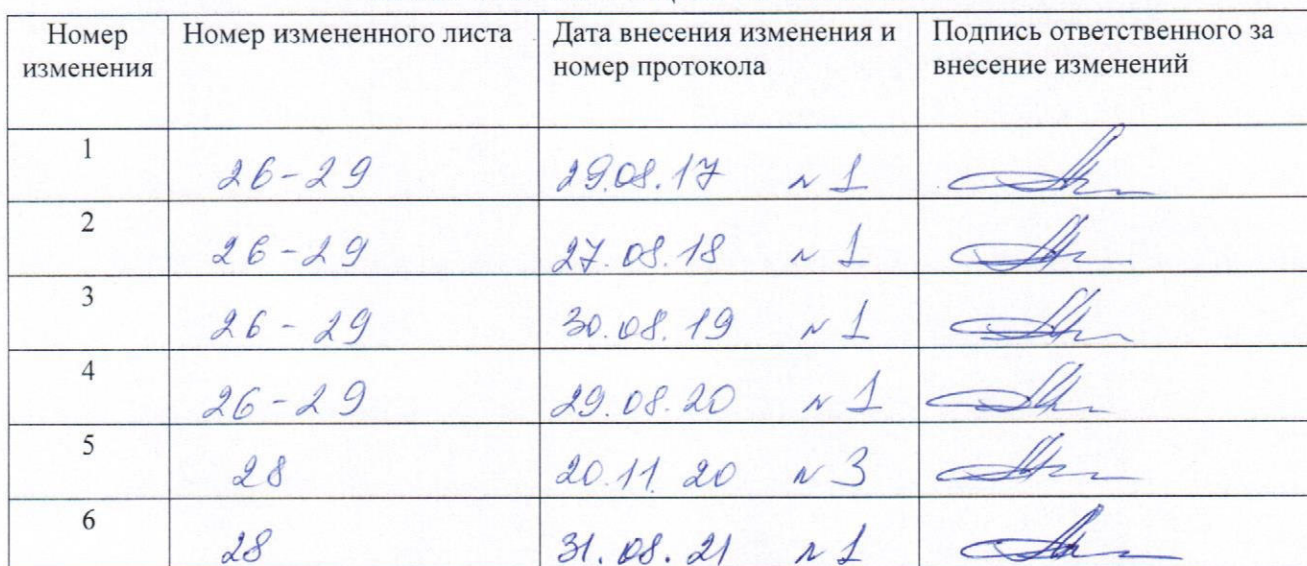 Номер изменения
Номер измененного листа
Дата внесения изменения и номер протокола
Подпись ответственного за внесение изменений
1 26-29 29.08.17 N 1
2 26-29 27.08.18 N 1
3 26-29 30.08.19 N 1
4 26-29 29.08.20 N 1
5 28 20.11.20 N 3
6 28 31.08.21 N 1